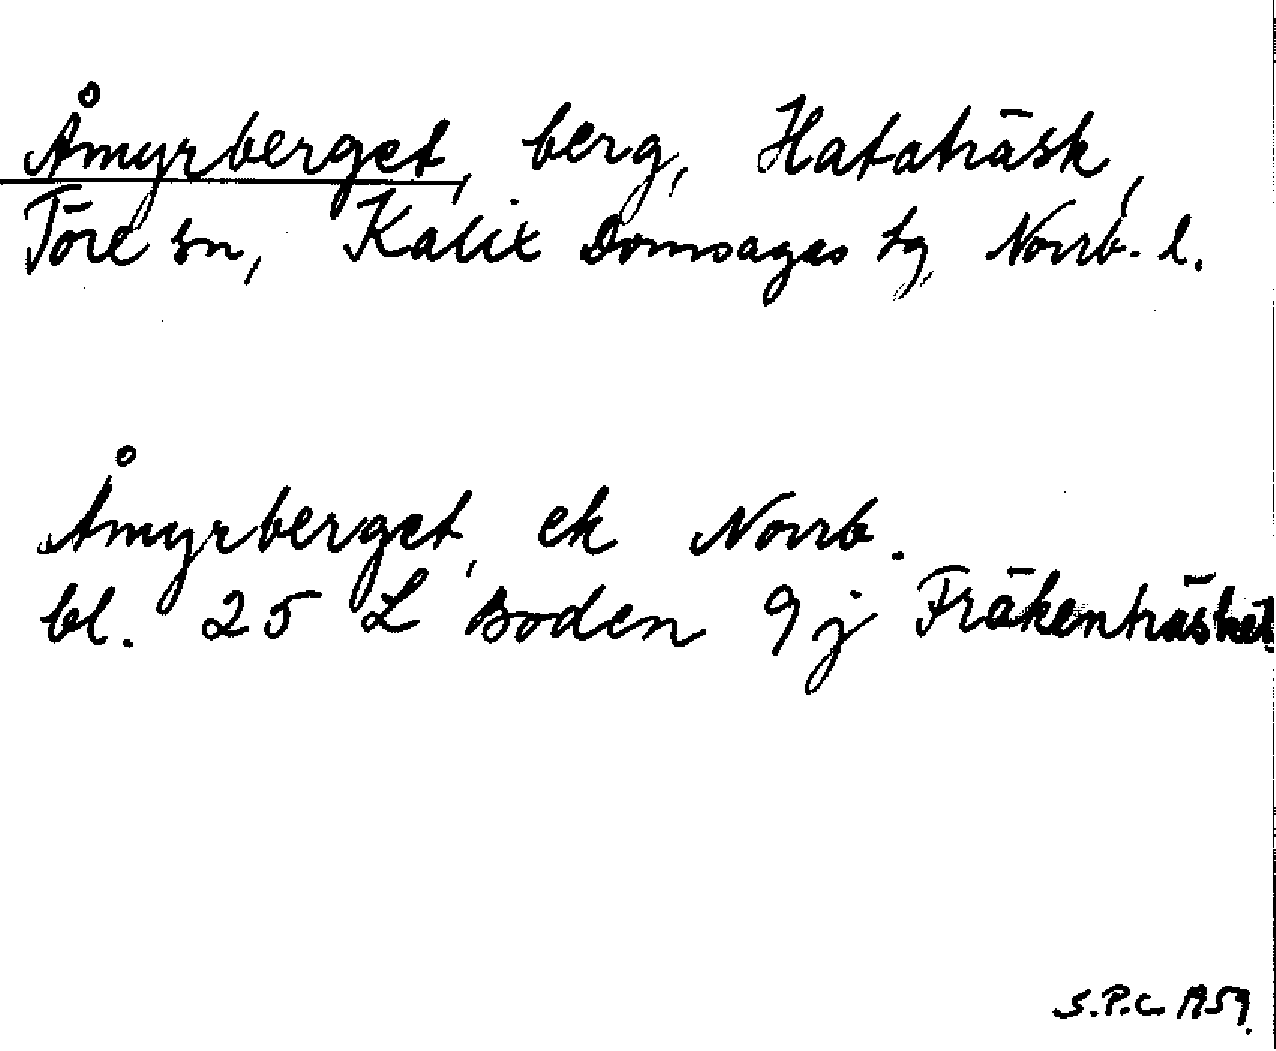 Åmyrberget, berg, Hataträsk,
Töre sn, Kalix Domsagas tg, Norrb. l.
Åmyrberget, ek Norrb.
bl. 25 L Boden 9j Fräkenträsket
S.P.C 1959.